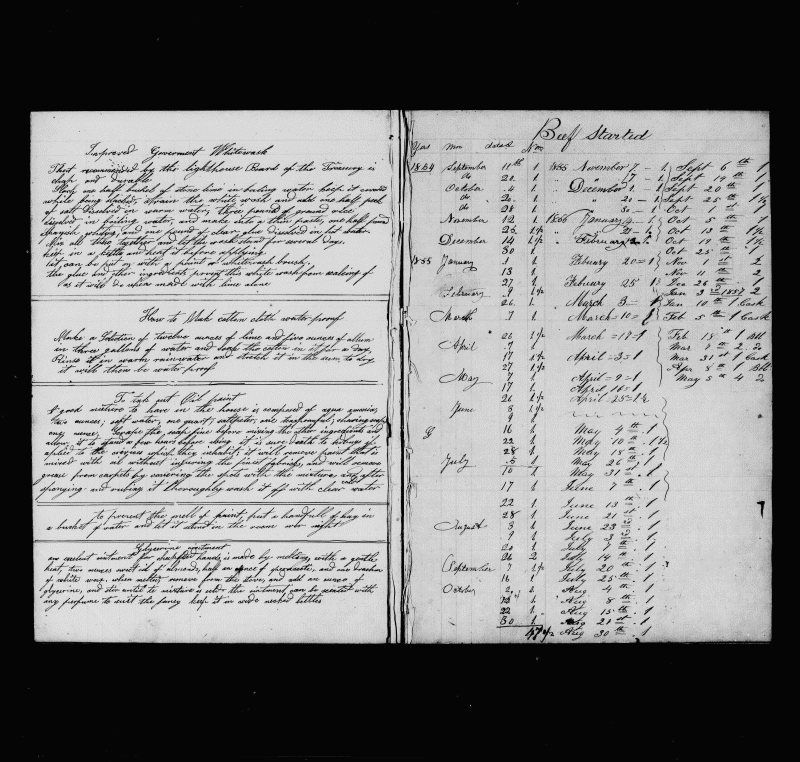 Improved Goverment Whitewash
That recomended by the lighthouse Board of the Treasury is
cheap and durable
Slake one half bushel of stone lime in boiling water keep it covered
while being slacked, strain the wash and add one half peck
of salt disolved in warm water, three pounds of ground rice
in boiling water, and made into a thin paste, one half pound
Spanish whiting, and one pound of clear glue disolved in hot water
Mix all these together and let the wash stand for several days.
keep in a kettle and heat it before applying.
it can be put on with a paint or whitewash brush.
the glue and other ingredients prevent this white wash from washing off
as it will do when made with lime alone
How to Make cotton cloth water proof
Make a Solution of twelve ounces of lime and five ounces of allum
in three gallons of water and keep the cotton in it for a day,
Rinse it in warm rainwater and stretch it in the sun, to dry
it will then be water proof
To take out Oil paint
A good mixture to have in the house is composed of aqua amonia,
two ounces; soft water, one quart; saltpeter, one teaspoonful; shaving soap
one ounce. Scrape the soap fine before mixing the other ingredients and
allow it to stand a few hours before using it is sure death to bedbugs if
applied to the crevices which they inhabit it will remove paint that is
mixed with oil without injuring the finest fabrics, and will remove
grease from carpets by covering the spots with the mixture, and after
sponging and rubing it thoroughly wash it off with clear cold water
to prevent the smell of paint, put a handfull of hay in
a bucket of water and let it stand in the room over night
Glycerine ointment
an excelent ointment for chapped hands, is made by melting, with a gentle
heat, two ounces sweet oil of almonds, half an ounce of spermaceti, and one drachm
of white wax. when melted, remove from the stove, and add an ounce of
glycerine, and stir until the mixture is cold. the ointment can be scented with
any perfume to suit the fancy keep it in wide necked bottles
Beef Started
Year Mon dated No
1854 September 11th 1 1855 November 7 - 1 Sept 6th 1
do 20 1 " 17 - 1 Sept 14th 1
October 4 1 December 1 - 1 Sept 20th 1
do 20 1 " 21 - 1 Sept 25th 1½
do 28 1 " 30 - 1 Oct
November 12 1 1856 January 4 - 1 Oct 5th 1
25 1½ " 21 - 1 Oct 13th 1½
December 14 1½ February Oct 19th 1½
30 1 Oct 25th 1
1855 January 7 1 February 20 = 1 Nov 1st 2
13 1 Nov 11th 2
27 1 February 25 1 Dec 26th 2
February 9 1½ Jan 3rd 1857 2
26 1 March 3 = 1 Jan 10th 1 Cask
March 7 1 March 10 = 1 Feb 5th 1 Cask
26 1½ March = 17 = 1 Feb 18th 1 Bll
April 7 1 Mar 4th 2 do
17 1½ April = 3 = 1 Mar 31st 1 Cask
27 1½ Apr 8th 1 Bll
May 7 1 April = 9 = 1 May 5th 4 do
17 1 April 16 = 1
26 1½ April 25 = 1½
June 3 1½
9 1
G 16 1 May 4th 1
22 1 May 10th 1½
28 1 May 18th 1
July 5 1 May 26th 1
10 1 May 31st 1
17 1 June 7th 1
22 1 June 13th 1
28 1 June 21st 1
August 3 1 June 28th 1
9 1 July 3rd 1
20 1 July 9 1
26 2 July 14th 1
September 7 1½ July 20th 1
16 1 July 25th 1
October 2 1 Aug 4th 1
12 1 Aug 8th 1
22 1 Aug 15th 1
30 1 Aug 21st 1
47½ Aug 30th 1